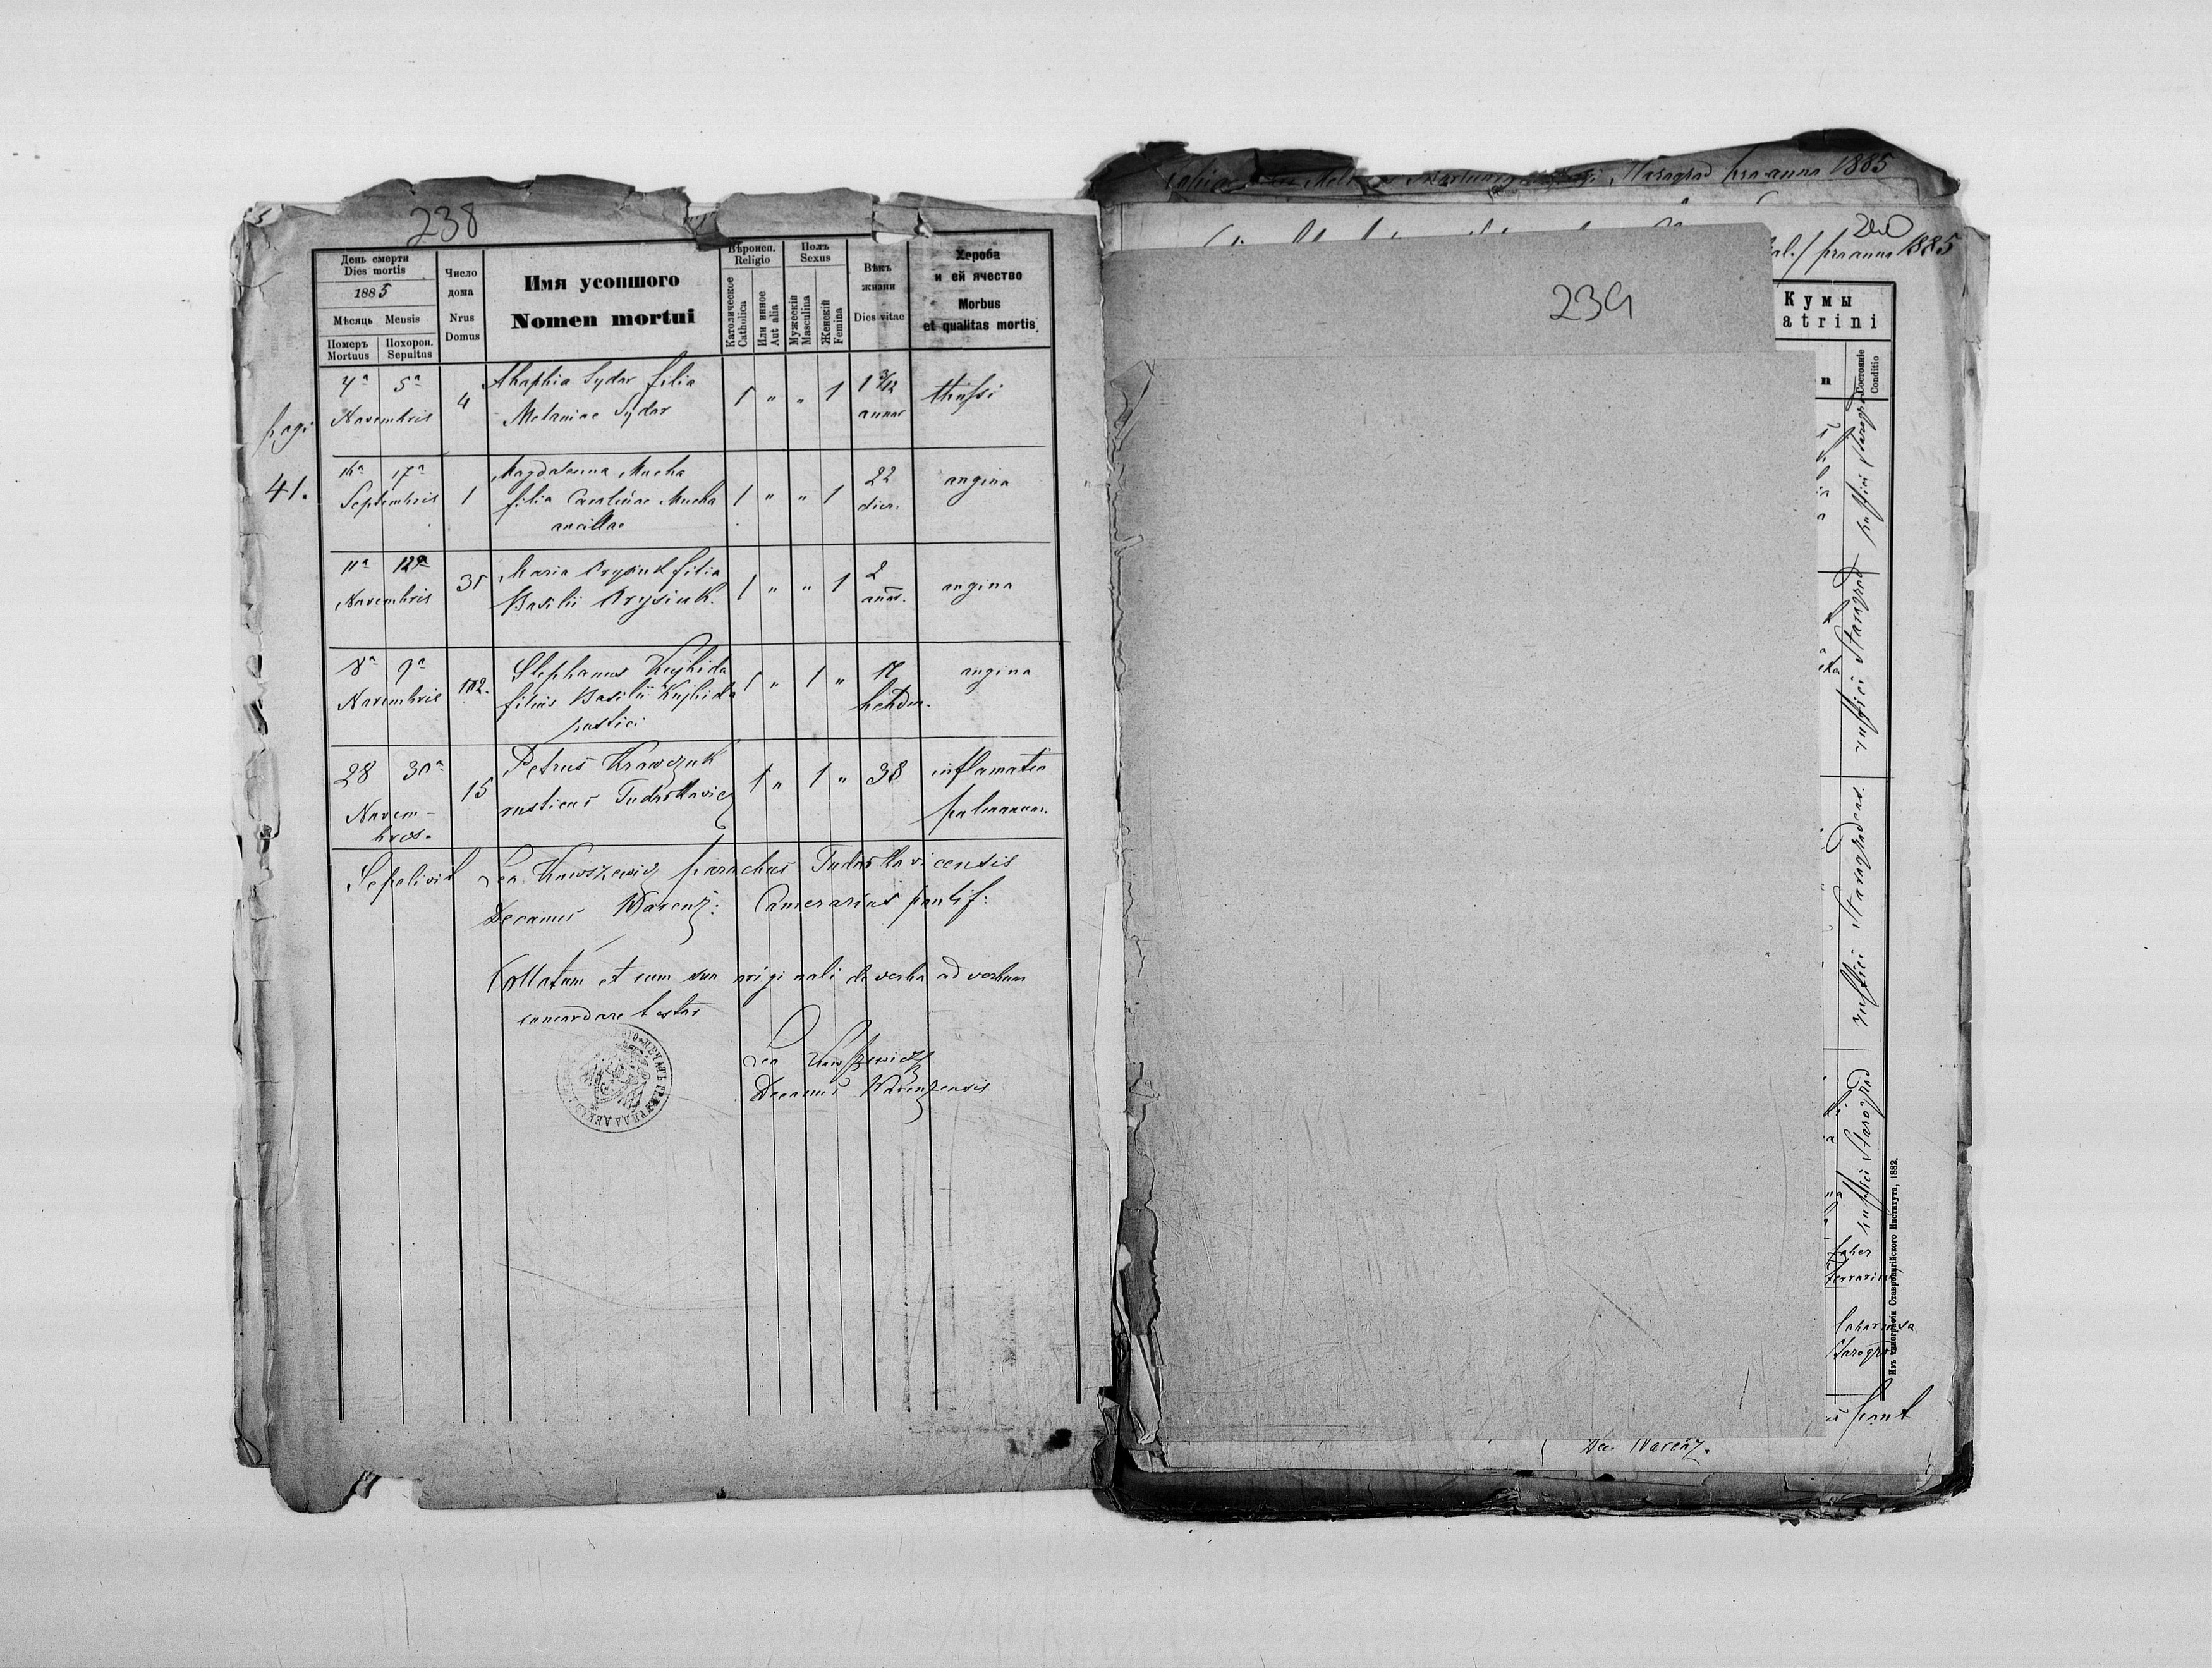 238
День смерти
Dies mortis
1885
Мѣсяць Mensis
Померъ Похорон.
Mortuus Sepultus
Число
дома
Nrus
Domus
Имя усопшого
Nomen mortui
Вѣроисп.
Religio
Католическое
Catholica
Или инное
Aut alia
Полъ
Sexus
Мужескій
Masculina
Женскій
Femina
Вѣкъ
жизни
Dies vitae
Хероба
и ей ячество
Morbus
et qualitas mortis.
pagi
41.
4ª 5ª
Novembris
4
Ahaphia Sydor filia
Melaniae Sydor
1 " " 1
1 3/12
annor
thussi
16ª 17ª
Septembris
1
Magdalenna Mucha
filia Carolinae Mucha
ancillae
1 " " 1
22
dier.
angina
11ª 12ª
Novembris
35
Maria Orysiuk filia
Basilii Orysiuk.
1 " " 1
2
annor.
angina
8ª 9ª
Novembris
112.
Stephanus Kujbida
filius Basilii Kujbida
rustici
1 " 1 "
17
hebdm.
angina
28 30ª
Novem-
bris.
15
Petrus Krawczuk
rusticus Tudorkovic
1 " 1 "
38
inflamatio
pulmonum.
Sepelivit Leo Kowszewicz parochus Tudorkovicensis
Decanus Warenz: Camerarius pontif:
Collatum et cum suo originali de verbo ad verbum
concordare testor
Leo Kowszewicz
Decanus Warenzensis
Starogrod pro anno 1885
240
al./ pro anno 1885
239
Кумы
atrini
n
Состояніе
Conditio
rustici Starogrod
rustici Starogrod
rustici Starogrodens.
rustici Starogrod
faber
ferrarius
Starogrod
pont
Dec. Warenz.
Изъ типографіи Ставропигійского Института, 1882.